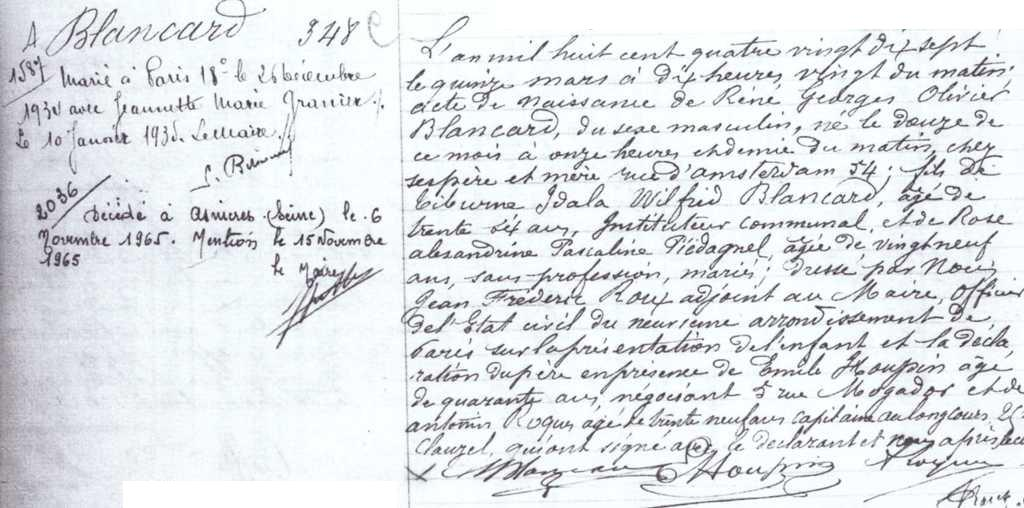 A Blancard 348
1587 Marié à Paris 18e le 26 Décembre
1934 avec Jeannette Marie Granier.
Le 10 Janvier 1935. Le Maire
2036
Décédé à Asnières (Seine) le 6
Novembre 1965. Mention le 15 Novembre
1965
le Maire
L'an mil huit cent quatre vingt dix sept
le quinze mars à dix heures vingt du matin,
acte de naissance de René Georges Olivier
Blancard, du sexe masculin, né le douze de
ce mois à onze heures et demie du matin, chez
ses père et mère rue d'amsterdam 54; fils de
Tiburne Idala Wilfrid Blancard, âgé de
trente six ans, Instituteur communal, et de Rose
alexandrine Pascaline Piédagnel, âgée de vingt neuf
ans, sans profession, mariés; dressé par Nous
Jean Frédéric Roux adjoint au Maire, officier
de l'Etat civil du neuvième arrondissement de
Paris sur la présentation de l'enfant et la décla
ration du père en présence de Emile Houpin âgé
de quarante ans, négociant 5 rue Mogador et de
antonin Roques âgé de trente neuf ans capitaine au long cours, 25
Clauzel, qui ont signé avec le déclarant et nous après lecture
Blancard Houpin Roques
Roux